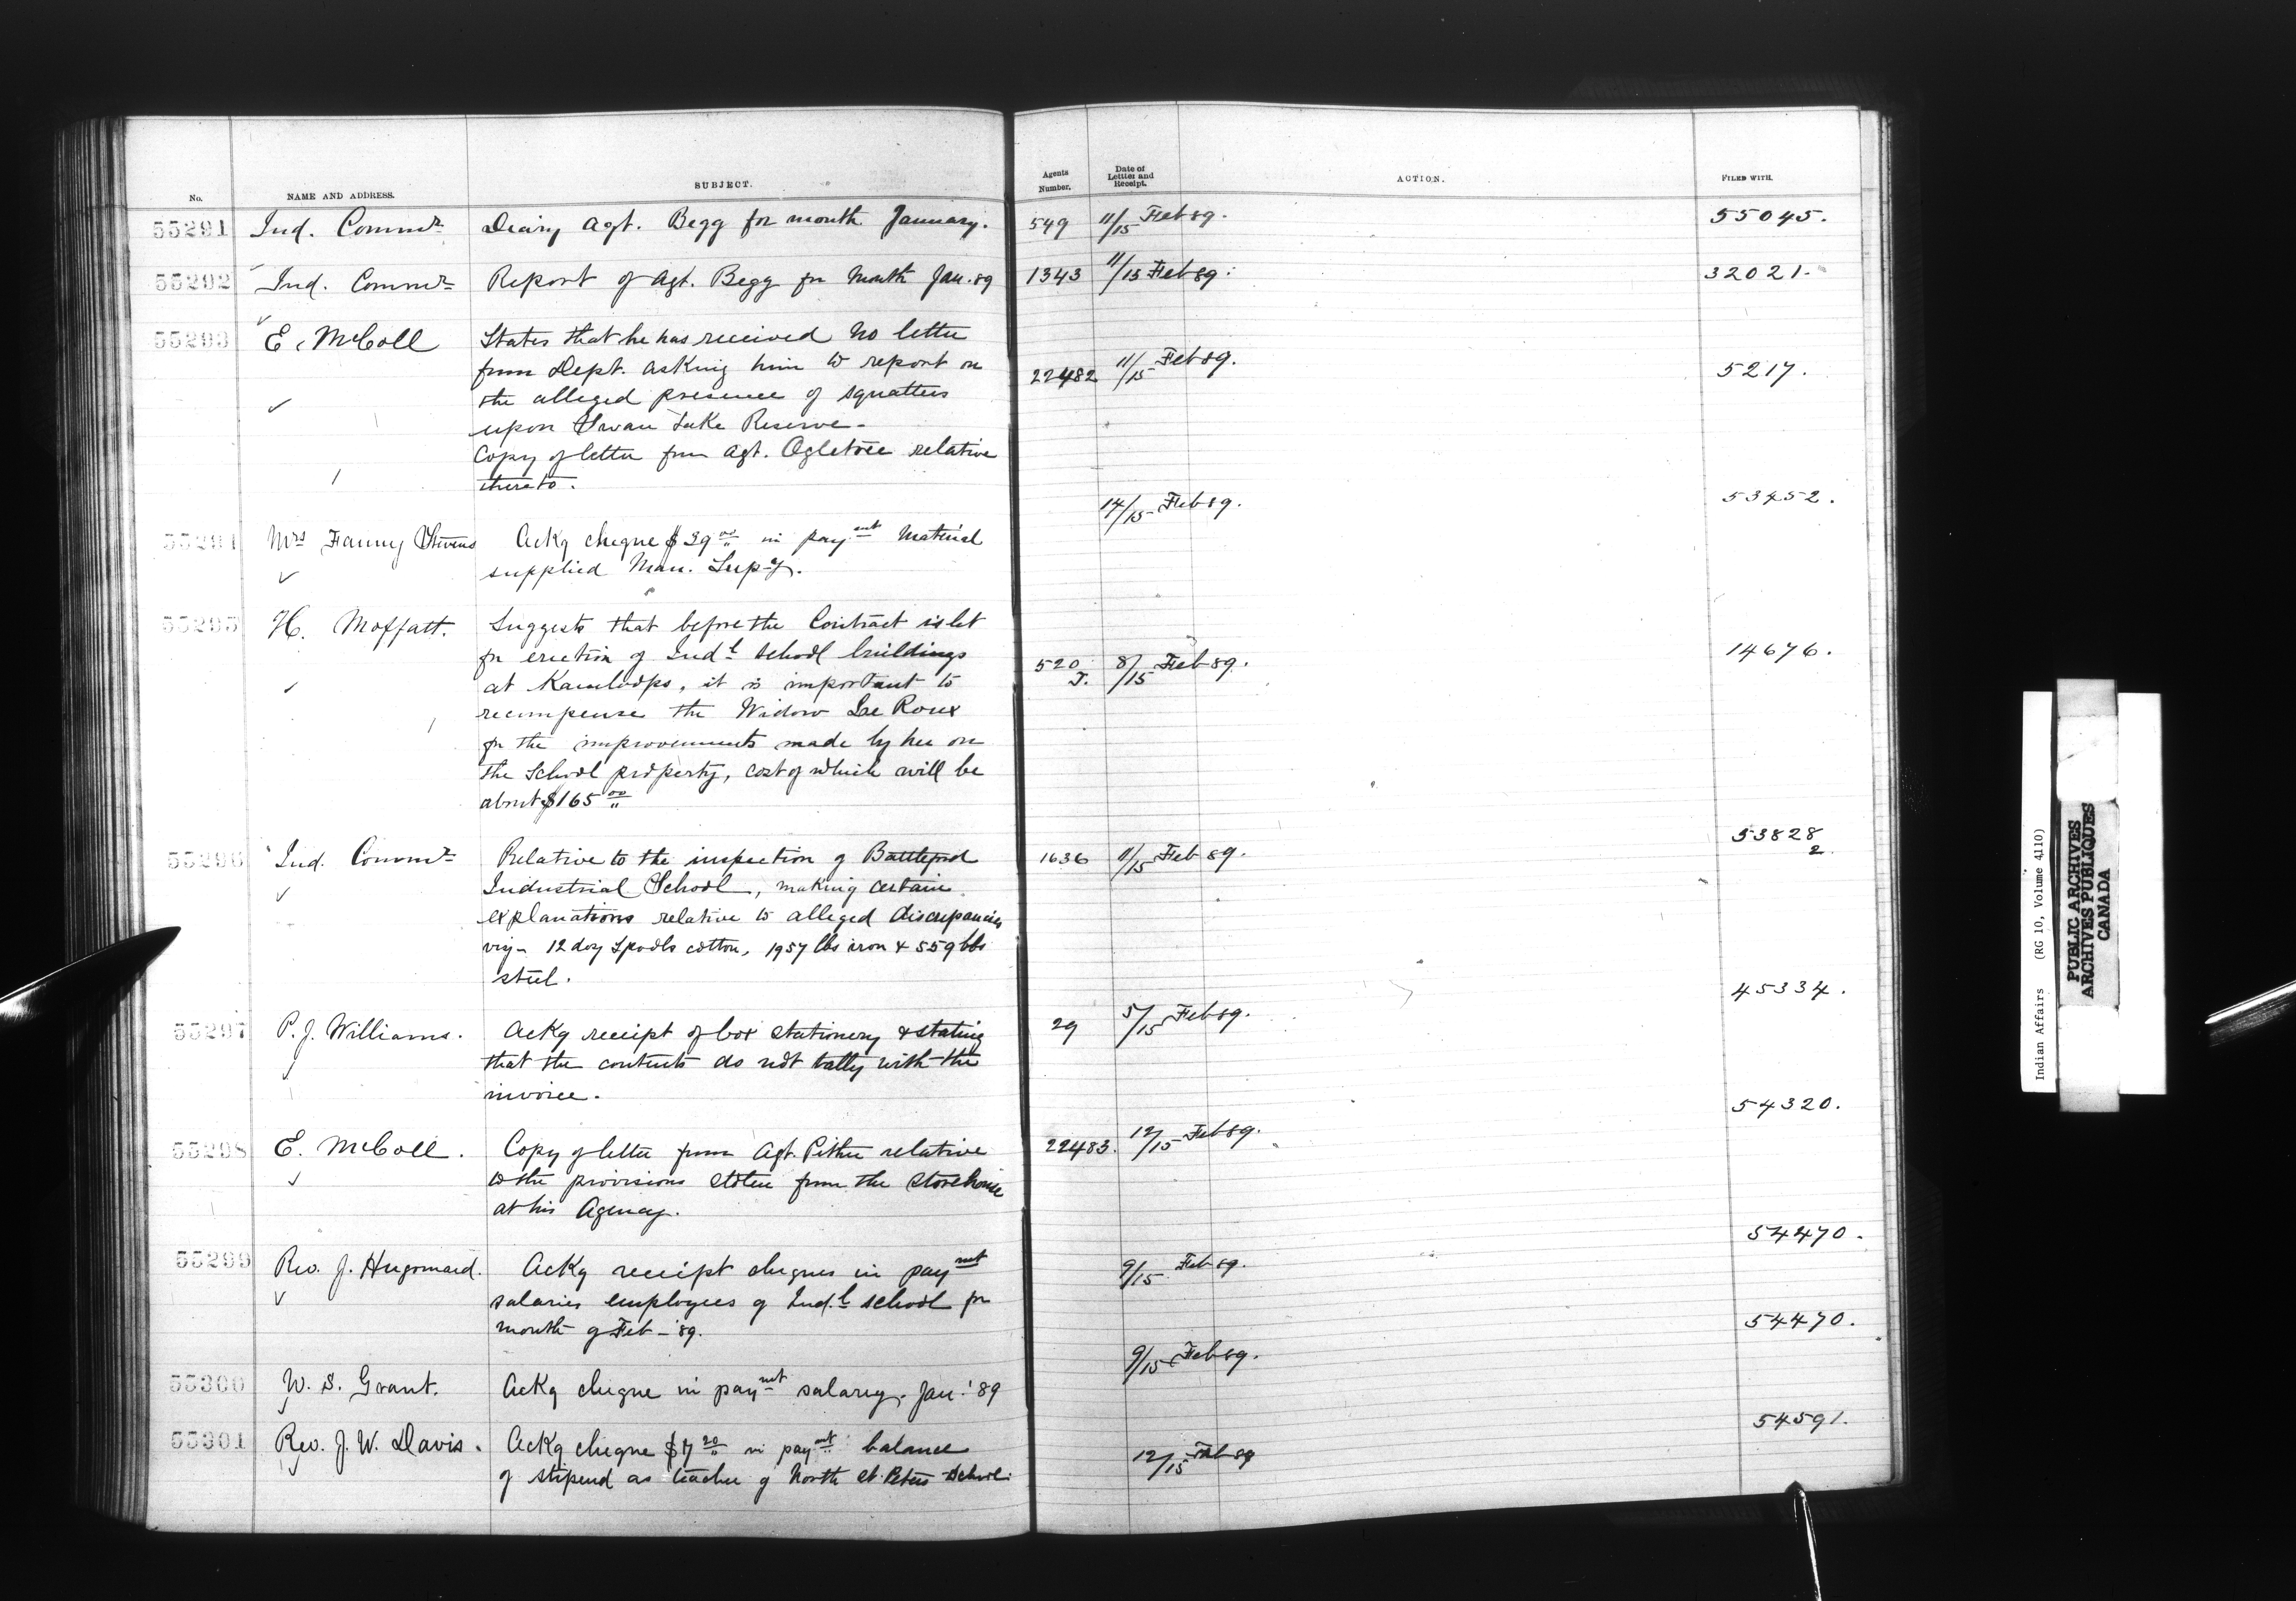 No.
NAME AND ADDRESS.
SUBJECT.
Agents Number.
Date of Letter and Receipt.
ACTION.
FILED WITH.
55291 Ind. Commr Diary Agt. Begg for month January. 549 11/15 Feb 89. 55045.
55292 Ind. Commr Report of Agt. Begg for Month Jan. 89 1343 11/15 Feb 89. 32021.
55293 E. McColl States that he has received no letter
from Dept. asking him to report on 22482 11/15 Feb 89. 5217.
the alleged presence of squatters
upon Swan Lake Reserve.
Copy of letter from Agt. Ogletree relative
thereto.
14/15 Feb 89. 53452.
55294 Mrs Fanny Stevens Ackg cheque $39 00 in paymt Material
supplied Man. Supcy.
55295 H. Moffatt. Suggests that before the Contract is let
for erection of Indl School buildings 520 J. 8/15 Feb 89. 14676.
at Kamloops, it is important to
recompense the Widow Le Roux
for the improvements made by her on
the School property, cost of which will be
about $165 00
55296 Ind. Commr Relative to the inspection of Battleford 1636 11/15 Feb 89. 53828 2.
Industrial School, making certain
explanations relative to alleged discrepancies
viz - 12 doz Spools cotton, 1957 lbs iron & 559 lbs
steel.
45334.
55297 P. J. Williams. Ackg receipt of box stationery & stating 29 5/15 Feb 89.
that the contents do not tally with the
invoice.
54320.
55298 E. McColl. Copy of letter from Agt. Pither relative 22483. 12/15 Feb 89.
to the provisions stolen from the storehouse
at his Agency.
54470.
55299 Rev. J. Hugonard. Ackg receipt cheques in paymt 9/15 Feb 89.
salaries employees of Ind.l school for
month of Feb - '89.
54470.
55300 W. S. Grant. Ackg cheque in paymt salary. Jan. '89 9/15 Feb 89.
54591.
55301 Rev. J. W. Davis. Ackg cheque $7 20 in paymt balance 12/15 Feb 89
of stipend as teacher of North St. Peters School.
Indian Affairs (RG 10, Volume 4110)
PUBLIC ARCHIVES
ARCHIVES PUBLIQUES
CANADA